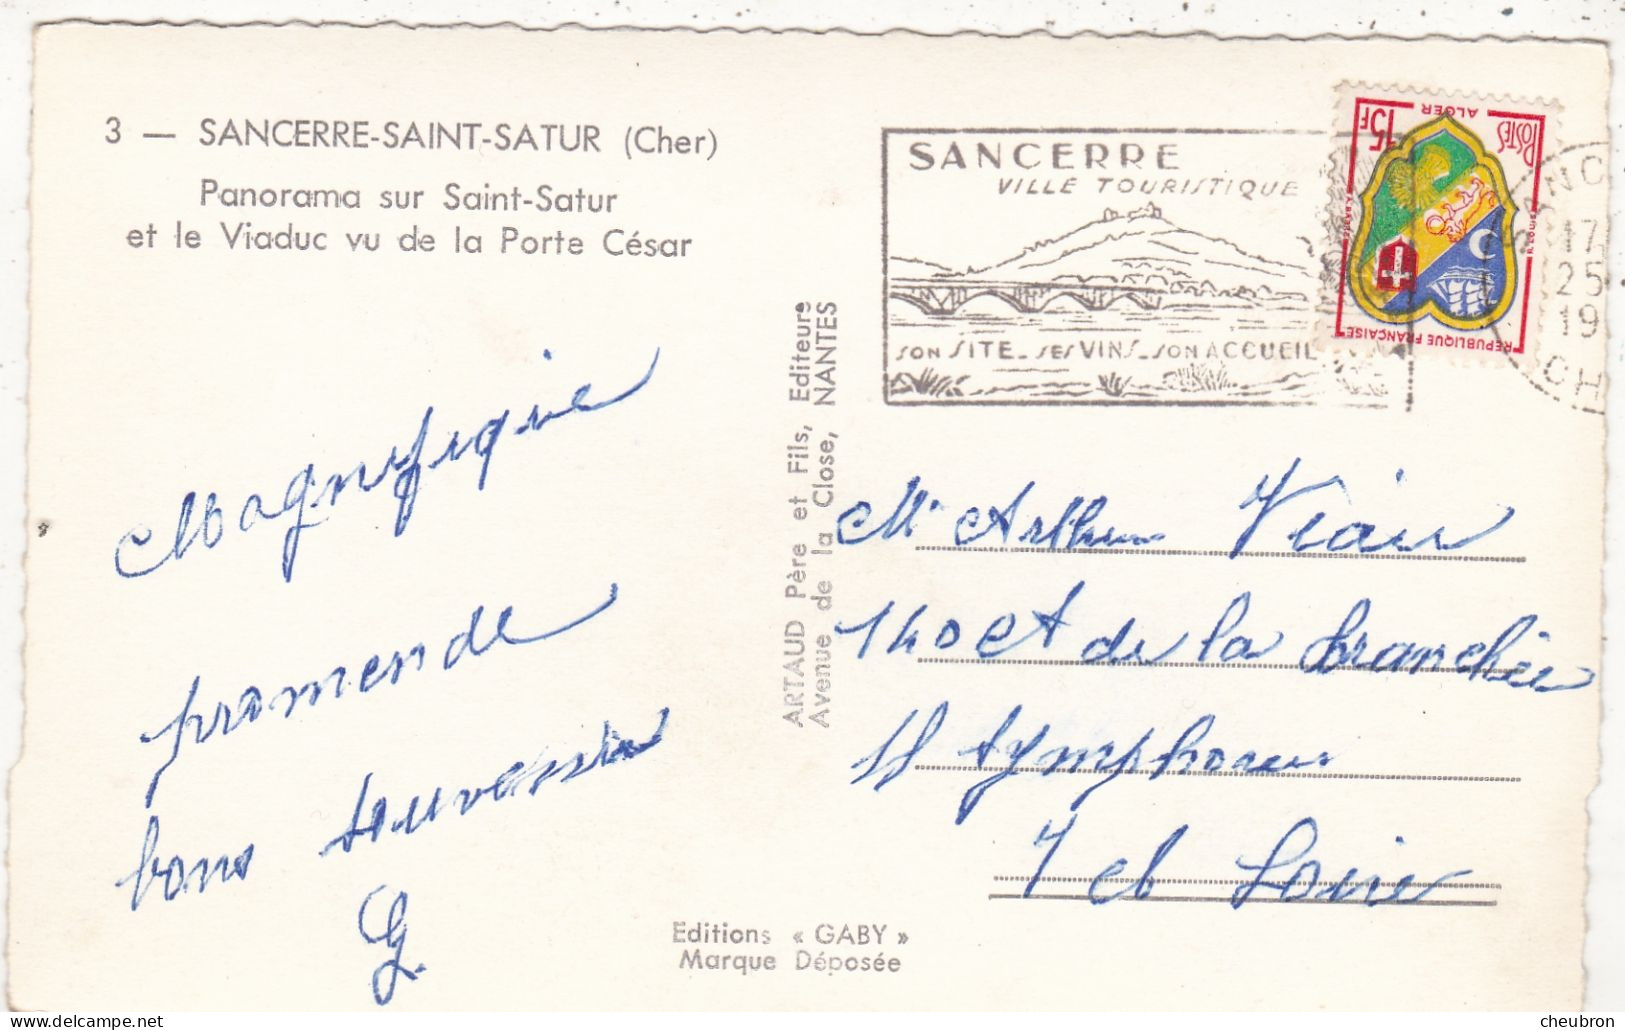 3 — SANCERRE-SAINT-SATUR (Cher)
Panorama sur Saint-Satur
et le Viaduc vu de la Porte César
Magnifique
promende
bons souvenirs
G
ARTAUD Père et Fils, Editeurs
Avenue de la Close, NANTES
Editions « GABY »
Marque Déposée
SANCERRE
VILLE TOURISTIQUE
SON SITE - SES VINS - SON ACCUEIL
POSTES
ALGER
15F
REPUBLIQUE FRANÇAISE
R. LOUIS
SANC
17
25
19
CH
Mr Arthur Viau
140 ct de la Branchèe
St Symphorien
I et Loire
cheubron - delcampe.net